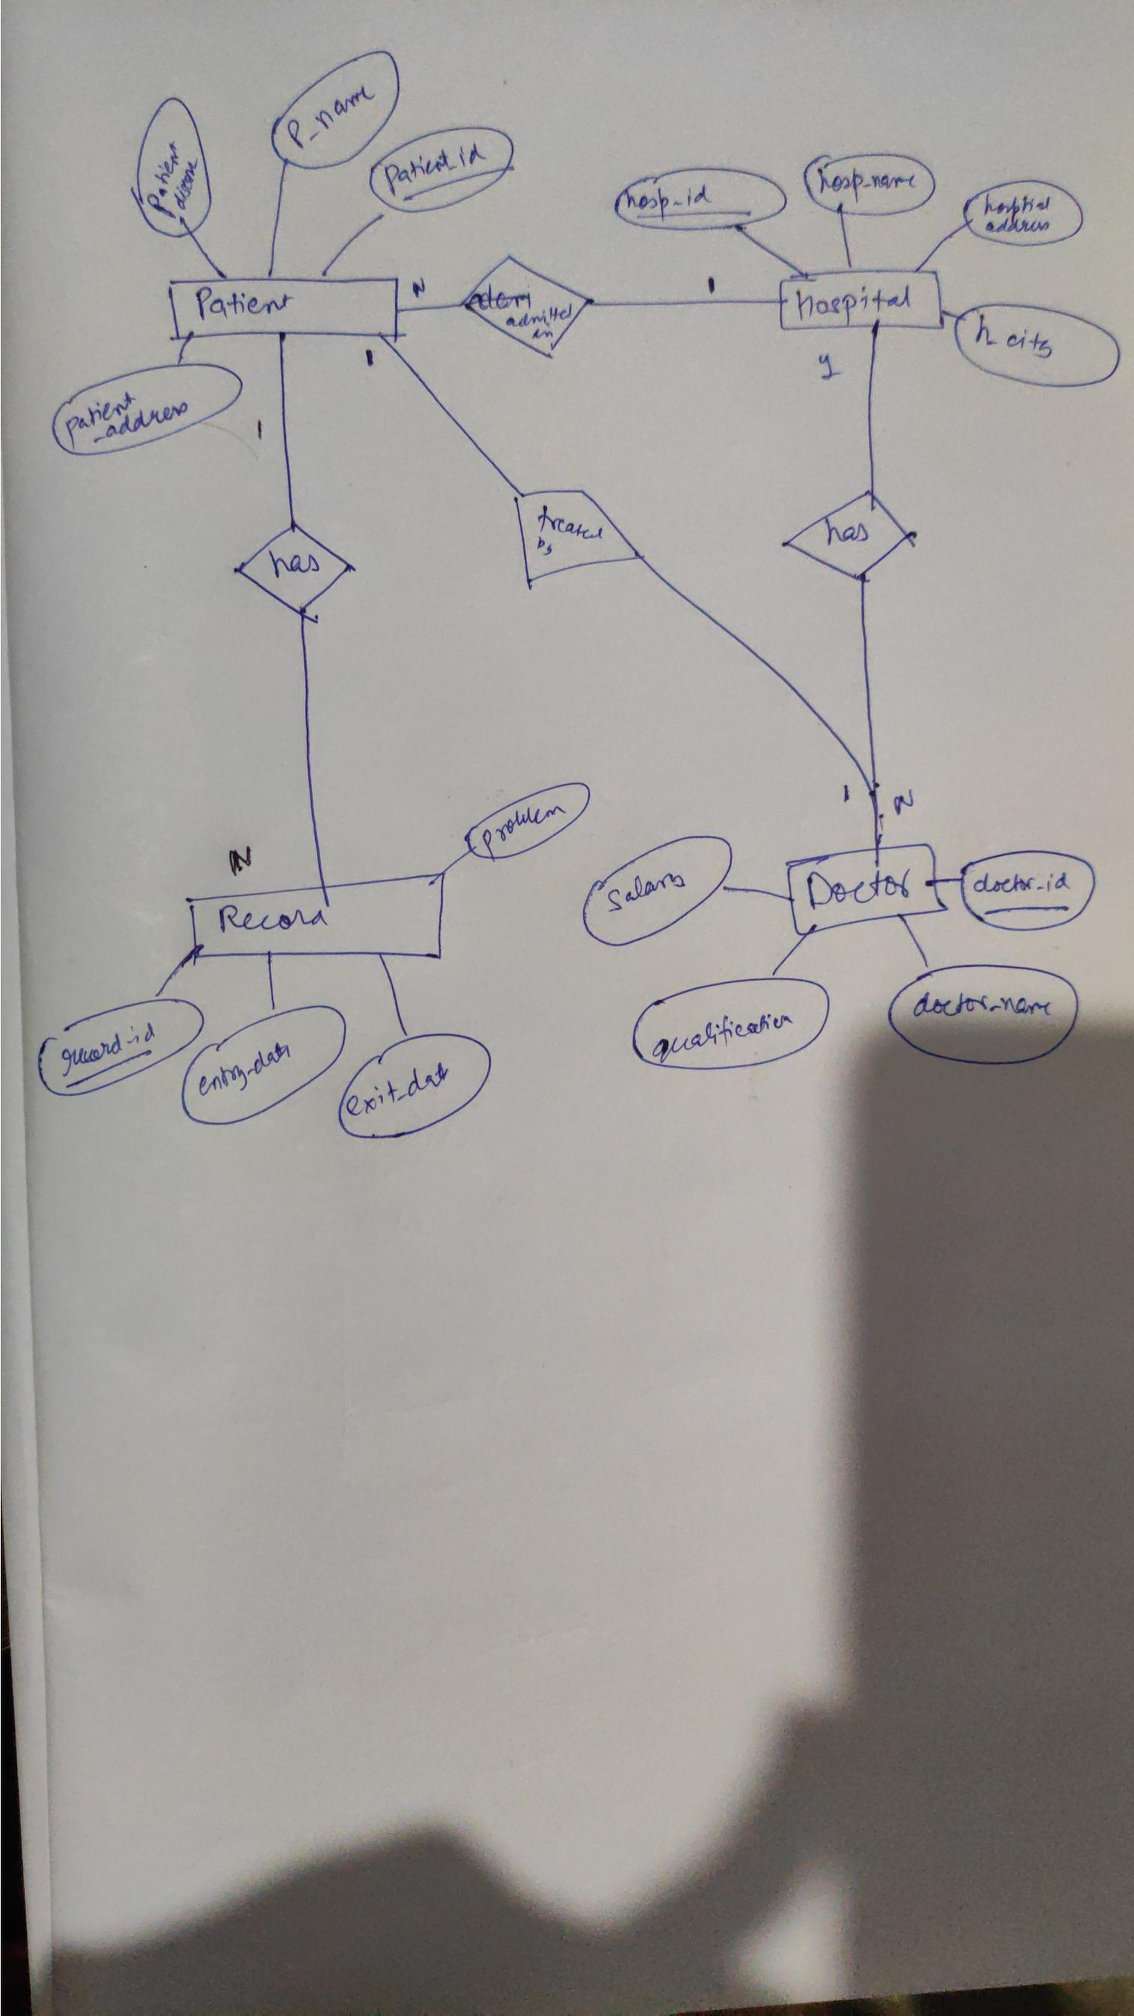 P_name
Patient
disease
Patient_id
hosp_id
hosp_name
hosptial
address
Patient
N
admitted
in
1
hospital
h_city
patient
_address
1
1
1
has
treated
by
has
1
N
N
problem
Record
Salary
Doctor
doctor_id
record_id
entry_date
exit_date
qualification
doctor_name